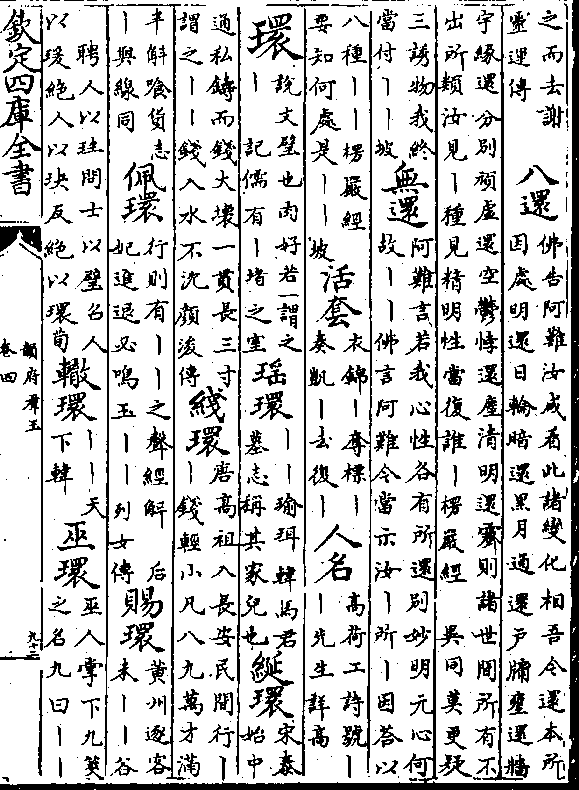 之而去謝
靈運傳
八還
佛告阿難汝咸看此諸變化相吾今還本所
因處明還日輪暗還黑月通還戶牖壅還牆
宇緣還分別頑虛還空鬱㶿還塵清明還霽則諸世間所有不
出所類汝見丨種見精明性當復誰丨楞嚴經 異同莫更疑
三誘物我終
當付丨丨坡
無還
阿難言若我心性各有所還則妙明元心何
故丨丨佛言阿難今當示汝丨所丨因荅以
八種丨丨楞嚴經
要知何處是丨丨坡
活套
衣錦丨奪標丨
奏凱丨去復丨
人名
高荷工詩號丨
丨先生詳高
環
說文璧也肉好若一謂之
丨 記儒有丨堵之室
瑶環
丨丨瑜珥韓馬君
墓志稱其家兒也
綖環
宋泰
始中
通私鑄而錢大壞一貫長三寸
謂之丨丨錢入水不沈顔浚傳
綫環
唐高祖入長安民間行丨
丨錢輕小凡八九萬才滿
半斛飡貨志
丨與線同
佩環
行則有丨丨之聲經解 后
妃進退必鳴玉丨丨列女傳
賜環
黄州逐客
未丨丨谷
聘人以珪問士以璧召人
以瑗絶人以玦反絶以環荀
轍環
丨丨天
下韓
巫環
巫人掌下九筴
之名九曰丨丨
欽定四庫全書
韻府羣玉
卷四
九十二